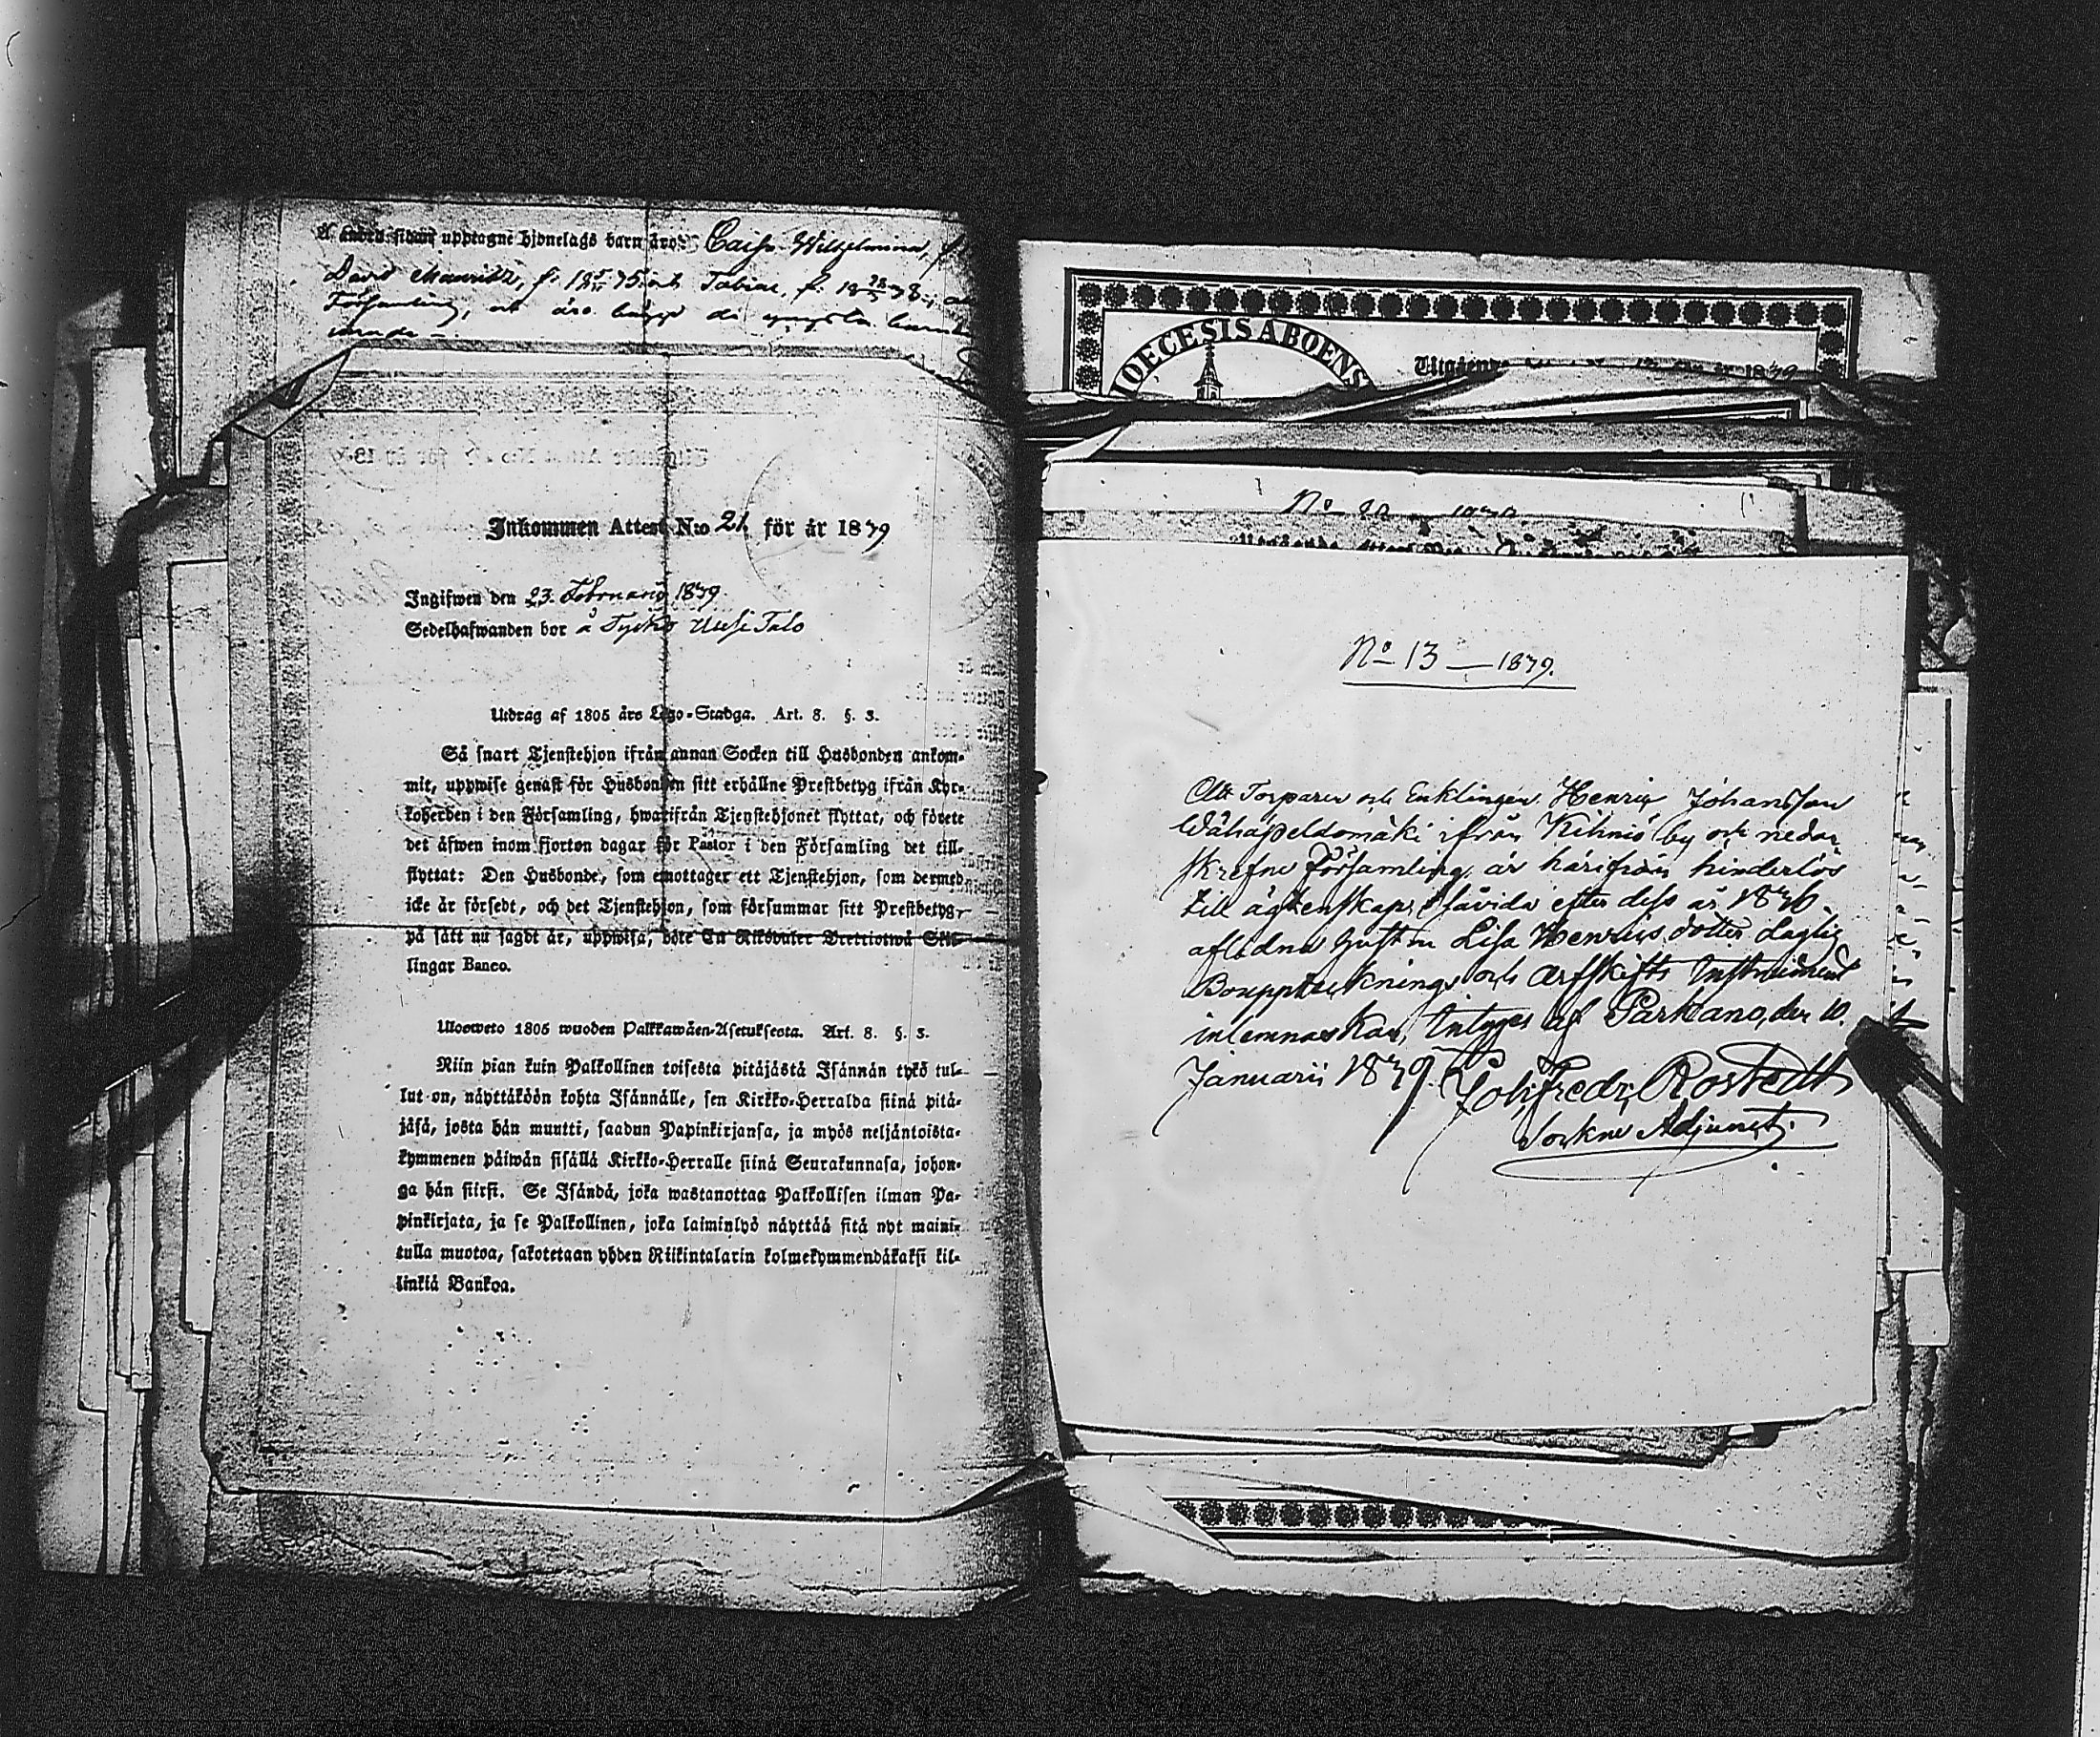 upptagne hjonelags barn äro: Cajsa Wilhelmina, f
David Mauritz, f. 75 och Tobias, f. 18 78
Församling, och äro begge de yngsta
Inkommen Attest N:o 21 för år 1879
Ingifwen den 23. Februarii 1879
Sedelhafwanden bor å Tyrkö Uusi Talo
Utdrag af 1805 års Lego-Stadga. Art. 8. §. 3.
Så snart Tjenstehjon ifrån annan Socken till Husbonden ankom-
mit, uppwise genast för Husbonden sitt erhållne Prestbetyg ifrån Kyr-
koherden i den Församling, hwarifrån Tjenstehjonet flyttat, och förete
det äfwen inom fjorton dagar för Pastor i den Församling det till-
flyttat: Den Husbonde, som emottager ett Tjenstehjon, som dermed
icke är försedt, och det Tjenstehjon, som försummar sitt Prestbetyg,
på sätt nu sagdt är, uppwisa, böte En Riksdaler Trettiotwå Skil-
lingar Banco.
Ulosweto 1805 wuoden Palkkawäen-Asetuksesta. Art. 8. §. 3.
Niin pian kuin Palkollinen toisesta pitäjästä Isännän tykö tul-
lut on, näyttäköön kohta Isännälle, sen Kirkko-Herralda siinä pitä-
jäsä, josta hän muutti, saadun Papinkirjansa, ja myös neljäntoista-
kymmenen päiwän sisällä Kirkko-Herralle siinä Seurakunnasa, johon-
ga hän siirsi. Se Isändä, joka wastanottaa Palkollisen ilman Pa-
pinkirjata, ja se Palkollinen, joka laiminlyö näyttää sitä nyt maini-
tulla muotoa, sakotetaan yhden Riikintalarin kolmekymmendäkaksi kil-
linkiä Bankoa.
IOECESIS ABOENS
Utgående 1879
No 20
No 13 — 1879.
Att Torparen och Enklingen Henrik Johansson
Wähäpeldomäki ifrån Kihniö by och nedan
skrefne Församling är härifrån hinderlös
till ägtenskap, såvida efter dess år 1876
aflidna hustru Lisa Henriksdotter laglig
Bouppteknings och Arfskifts Instrument
inlemnas kan, Intygas af Parkano, den 10.
Januarii 1879. Joh. Fredr. Rostedt
Sockne Adjunct.